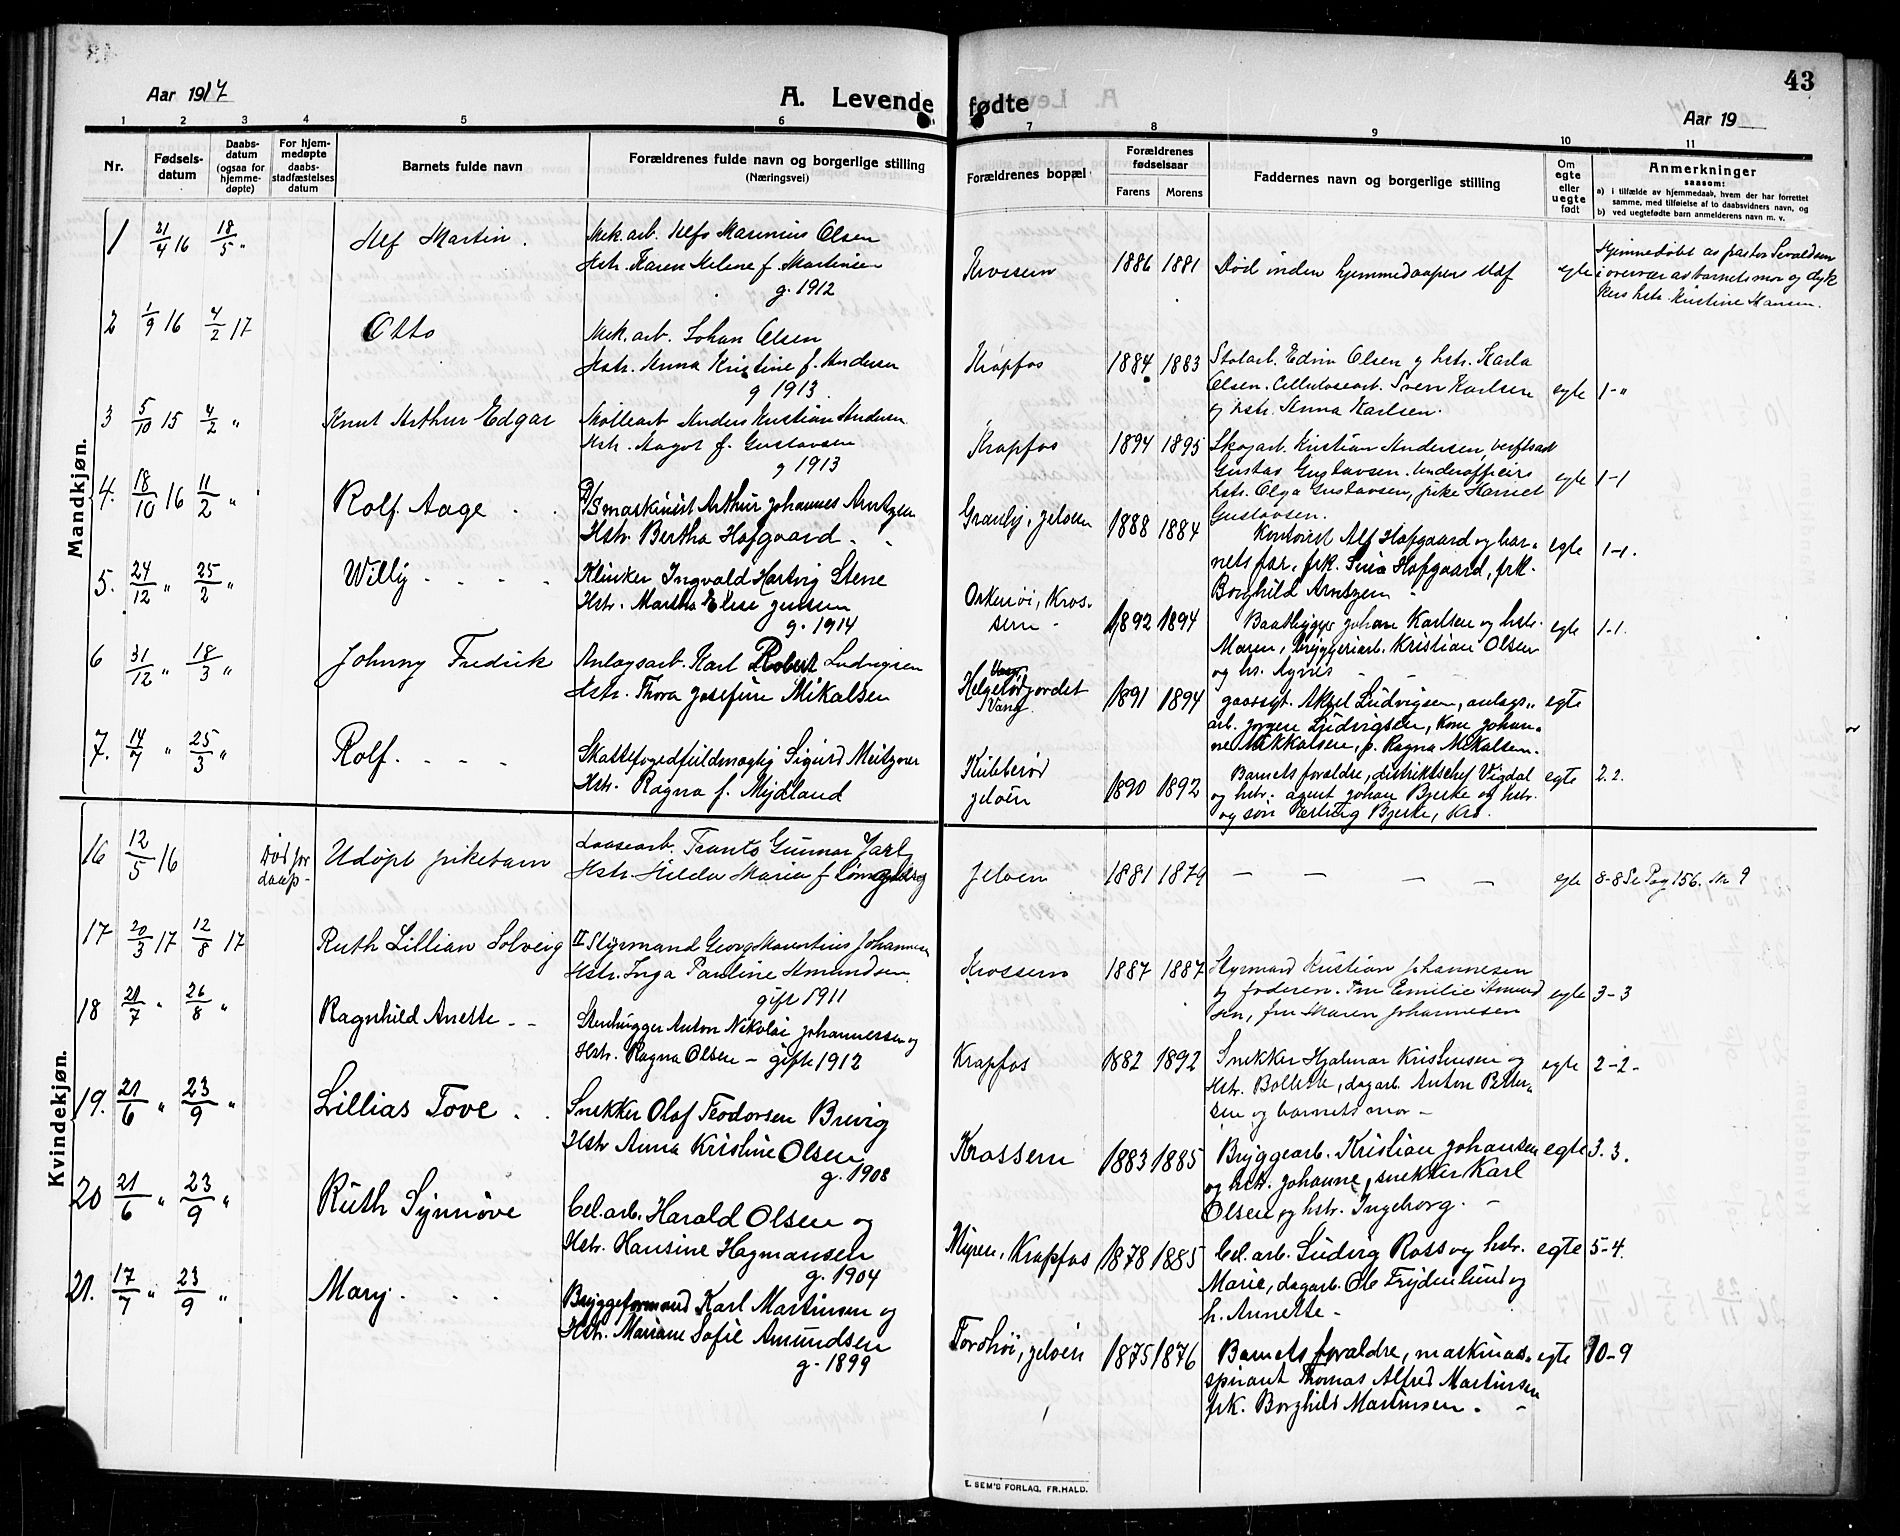 43
Aar 1917
A. Levende fødte
Aar 19
1 2 3 4 5 6 7 8 9 10 11
Nr.
Fødsels-
datum
Daabs-
datum
(ogsaa for
hjemme-
døpte)
For hjem-
medøpte
daabs-
stadfæstelses
datum
Barnets fulde navn
Forældrenes fulde navn og borgerlige stilling
(Næringsvei)
Forældrenes bopæl
Forældrenes
fødselsaar
Farens Morens
Faddernes navn og borgerlige stilling
Om
egte
eller
uegte
født
Anmerkninger
saasom:
a) i tilfælde av hjemmedaab, hvem der har forrettet
samme, med tilføielse av to daabsvidners navn, og
b) ved uegtefødte barn anmelderens navn m. v.
Mandkjøn.
1 21/4 16 18/5 "
Alf Martin.
Mek. arb. Alfs Marinius Olsen
Hstr. Karen Helene f. Martinsen
g. 1912
Krossern
1886 1881
Død inden hjemmedaapens stadf
egte
Hjemmedøbt av pastor Sevaldsen
i overvær av barnets mor og dyk
kers hstr. Kristine Hansen.
2 1/9 16 4/2 17
Otto
Mek. arb. Johan Olsen
Hstr. Anna Kristine f. Andersen
g 1913.
Krapfos
1884 1883
Stolarb. Edvin Olsen g hstr. Karla
Olsen. Cellulosearb. Sven Karlsen
og hstr. Anna Karlsen.
egte 1-"
3 5/10 15 4/2 "
Knut Arthur Edgar
Møllearb Anders Kristian Andersen
Hstr. Magot f. Gustavsen
g 1913
Krapfos
1894 1895
Skogarb. Kristian Andersen, verftsarb
Gustav Gustavsen. Underofficers
hstr. Olga Gustavsen, pike Harriet
Gustavsen.
egte 1-1
4. 18/10 16 11/2 "
Rolf Aage
D/S maskinist Arthur Johannes Arntzen
Hstr. Bertha Hofgaard -
Granly, Jeløen
1888 1884
Kontorist Alf Hofgaard og bar-
nets far, frk. Hofgaard, frk.
Borghild Arntzen -
egte 1-1.
5. 24/12 " 25/2 "
Willy
Klinker Ingvald Hartvig Stene
Hstr. Martha Elise Jensen
g. 1914
Orkerøi, Kros-
sern -
1892 1894
Baatbygger Johan Karlsen og hstr.
Maren, bryggeriarb. Kristian Olsen
og hs. Agnes -
egte 1-1.
6 31/12 " 18/3 "
Johnny Fredrik
Anlagsarb. Karl Robert Ludvigsen
Hstr. Thora Josefine Mikalsen
Vang
Helgerødjordet
Vang.
1891 1894
gaardgt. Aksel Ludvigsen, anlags-
arb. Jørgen Ludvigsen, Kone Johan-
ne Mikkalsen, p. Ragna Mikalsen.
egte
7. 14/7 " 25/3 "
Rolf.
Skattefogedfuldmægtig Sigurd Meitzner
Hstr. Ragna f. Mydland
Kubberød
Jeløen
1890 1892
Barnets forældre, distriktschef Vigdal
og hstr. agent Johan Bjerke og hstr.
og søn Bjerke, Kra.
egte 2.2.
Kvindekjøn.
16 12/5 16
Død før
daap-
Udøpt pikebarn
Laasearb. Frants Gunnar Jarl
Hstr. Hilda Maria f
Jeløen
1881 1879
- - - -
egte 8-8 Se Pag 156. Nr 9
17 20/3 17 12/8 17
Ruth Lillian Solveig
II Styrmand Georg Martinius Johannesen
Hstr. Inga Pauline Amundsen
gift 1911
Krossern
1887 1887
Styrmand Kristian Johannesen
og faderen. Fru Emilie Amund
sen, fru Maren Johannesen
egte 3-3
18 21/7 " 26/8 "
Ragnhild Anette
Stenhugger Anton Nikolai Johannessen og
Hstr. Ragna Olsen - gifte 1912
Krapfos
1882 1892
Snekker Hjalmar Kristensen og
Hstr. Bollette, dagarb. Anton Petter-
sen og barnets mor -
egte 2-2-
19. 21/6 " 23/9 "
Lillias Tove
Snekker Olaf Teodorsen Brevig
Hstr Anna Kristine Olsen
g. 1908
Krossern
1883 1885
Bryggearb. Kristian Johansen
og hstr. Johanne, snekker Karl
Olsen og hstr. Ingeborg. -
egte 3.3.
20 21/6 " 23/9 "
Ruth Synnøve
Cel. arb. Harald Olsen og
Hstr. Hansine Hagmansen
g. 1904
Myren, Krapfos
1878 1885
Cel. arb. Ludvig Ross og hstr.
Marie, dagarb. Ole Frydenlund og
h. Annette -
egte 5-4.
21. 17/7 " 23/9 "
Mary.
Bryggeformand Karl Martinsen og
Hstr. Mariane Sofie Amundsen
g. 1899
Torshøi, Jeløen
1875 1876
Barnets forældre, maskinas-
spirant Thomas Alfred Martinsen
frk. Borghild Martinsen. -
egte 10-9
E. SEM'S FORLAG, FR.HALD.